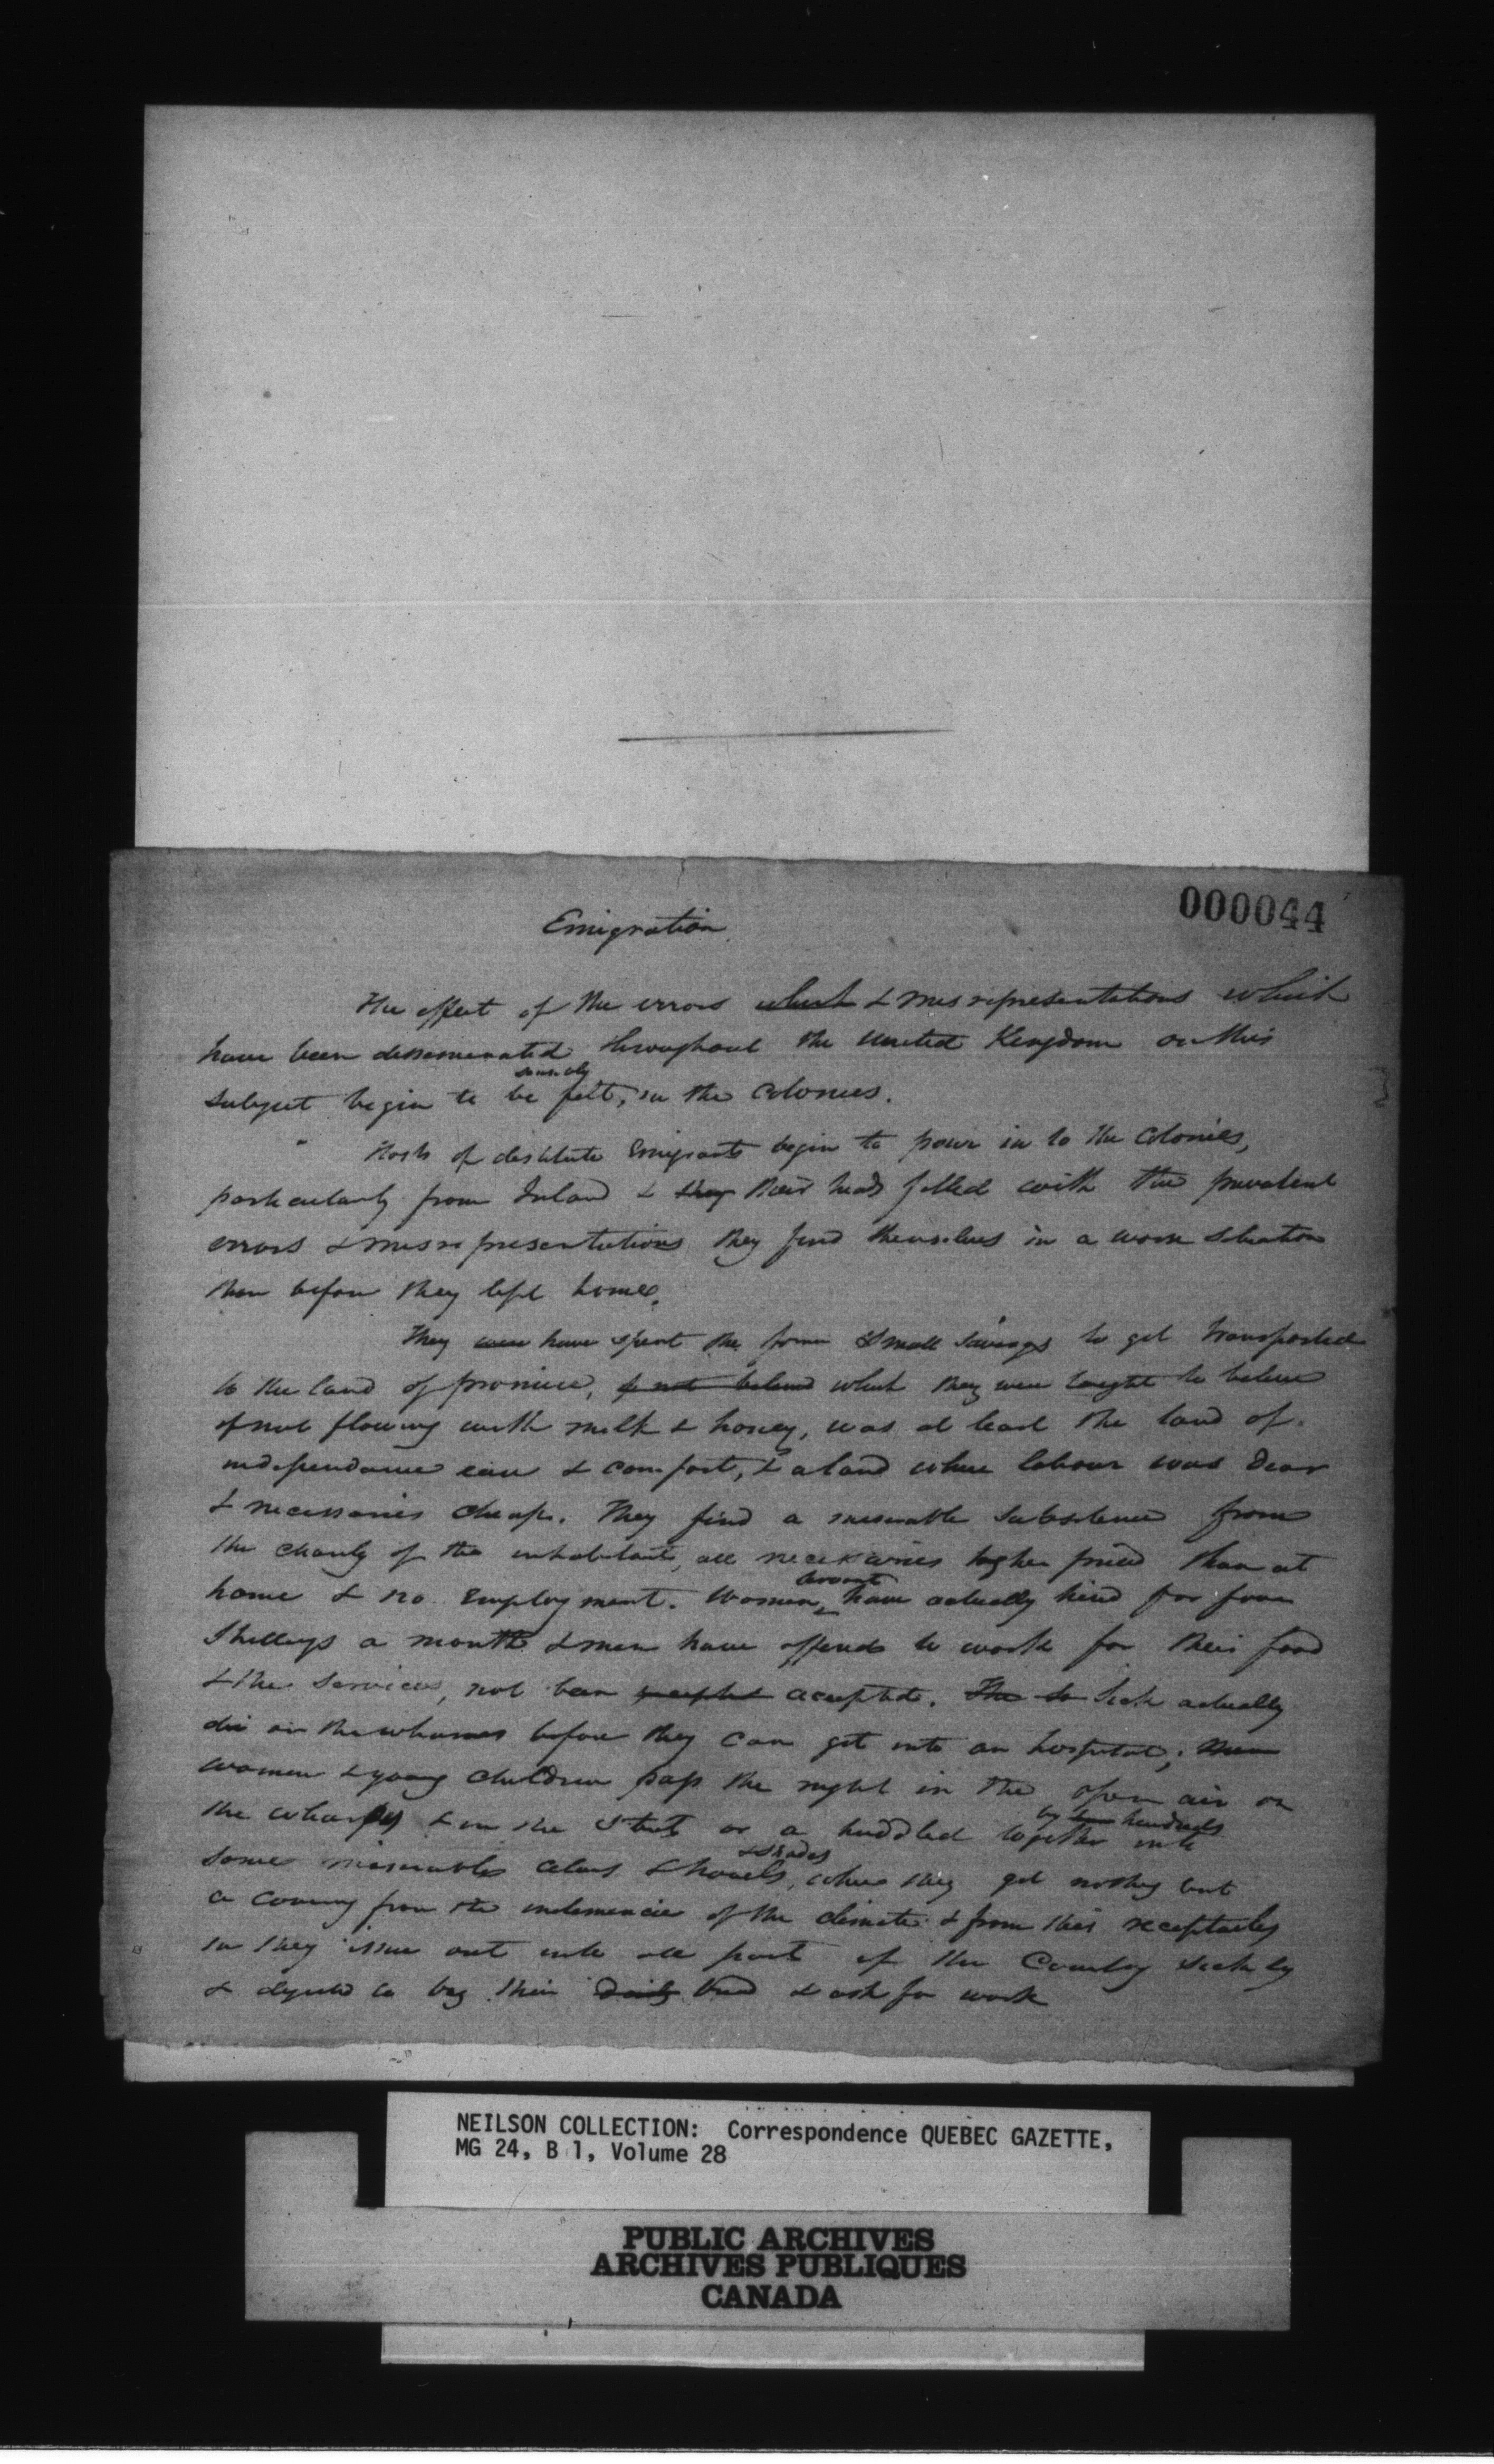 000044
Emigration
The effect of the errors which & misrepresentations which
have been dessemenated throughout the United Kingdom on this
sensibly
subject begin to be felt, in the Colonies.
Hosts of destitute Emigrants begin to pour in to the Colonies,
particularly from Ireland & they their heads filled with the prevalent
errors & misrepresentations they find themselves in a worse situation
than before they left home.
They were have spent the small savings to get transported
to the land of promise, which they were taught to believe
if not flowing with milk & honey, was at least the land of
independance ease & comfort, & a land where labour was dear
& necessaries cheap. They find a miserable subsistence from
the charity of the inhabitants, all necessaries higher priced than at
servants
home & no employment. Women have actually hired for four
Shillings a month & men have offered to work for their food
& the services, not been accepted. The Sick actually
die on the wharves before they can get into an hospital; Men
women & young children pass the night in the open air on
by hundreds
the wharfs & in the Streets or a huddled together into
& sheds
some miserable celars & hovels, where they get nothing but
a covering from the inclemencie of the climate & from their receptacles
they issue out into all parts of the Country sickly
& dejected to beg their daily bread & ask for work
NEILSON COLLECTION: Correspondence QUEBEC GAZETTE,
MG 24, B 1, Volume 28
PUBLIC ARCHIVES
ARCHIVES PUBLIQUES
CANADA